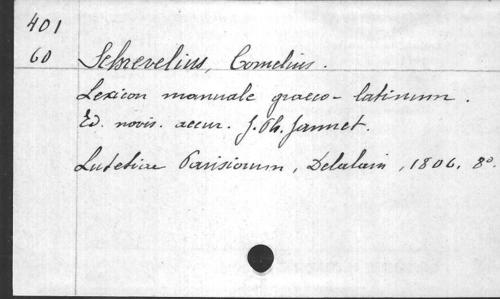 401
60 Schrevelius, Cornelius.
Lexicon manuale graeco-latinum.
Ed. novis. accur. J. Ph. Jannet.
Lutetiae Parisiorum, Delalain, 1806. 8º.